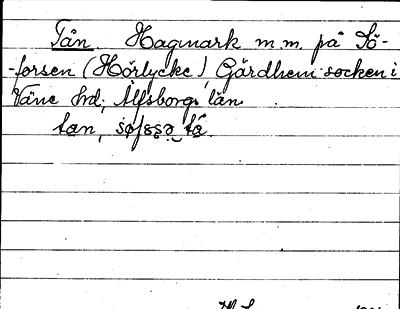 Tån. Hagmark m.m. på Sö-
-forsen (Hörlycke), Gärdhem socken i
Väne hd, Älfsborgs län
tan,